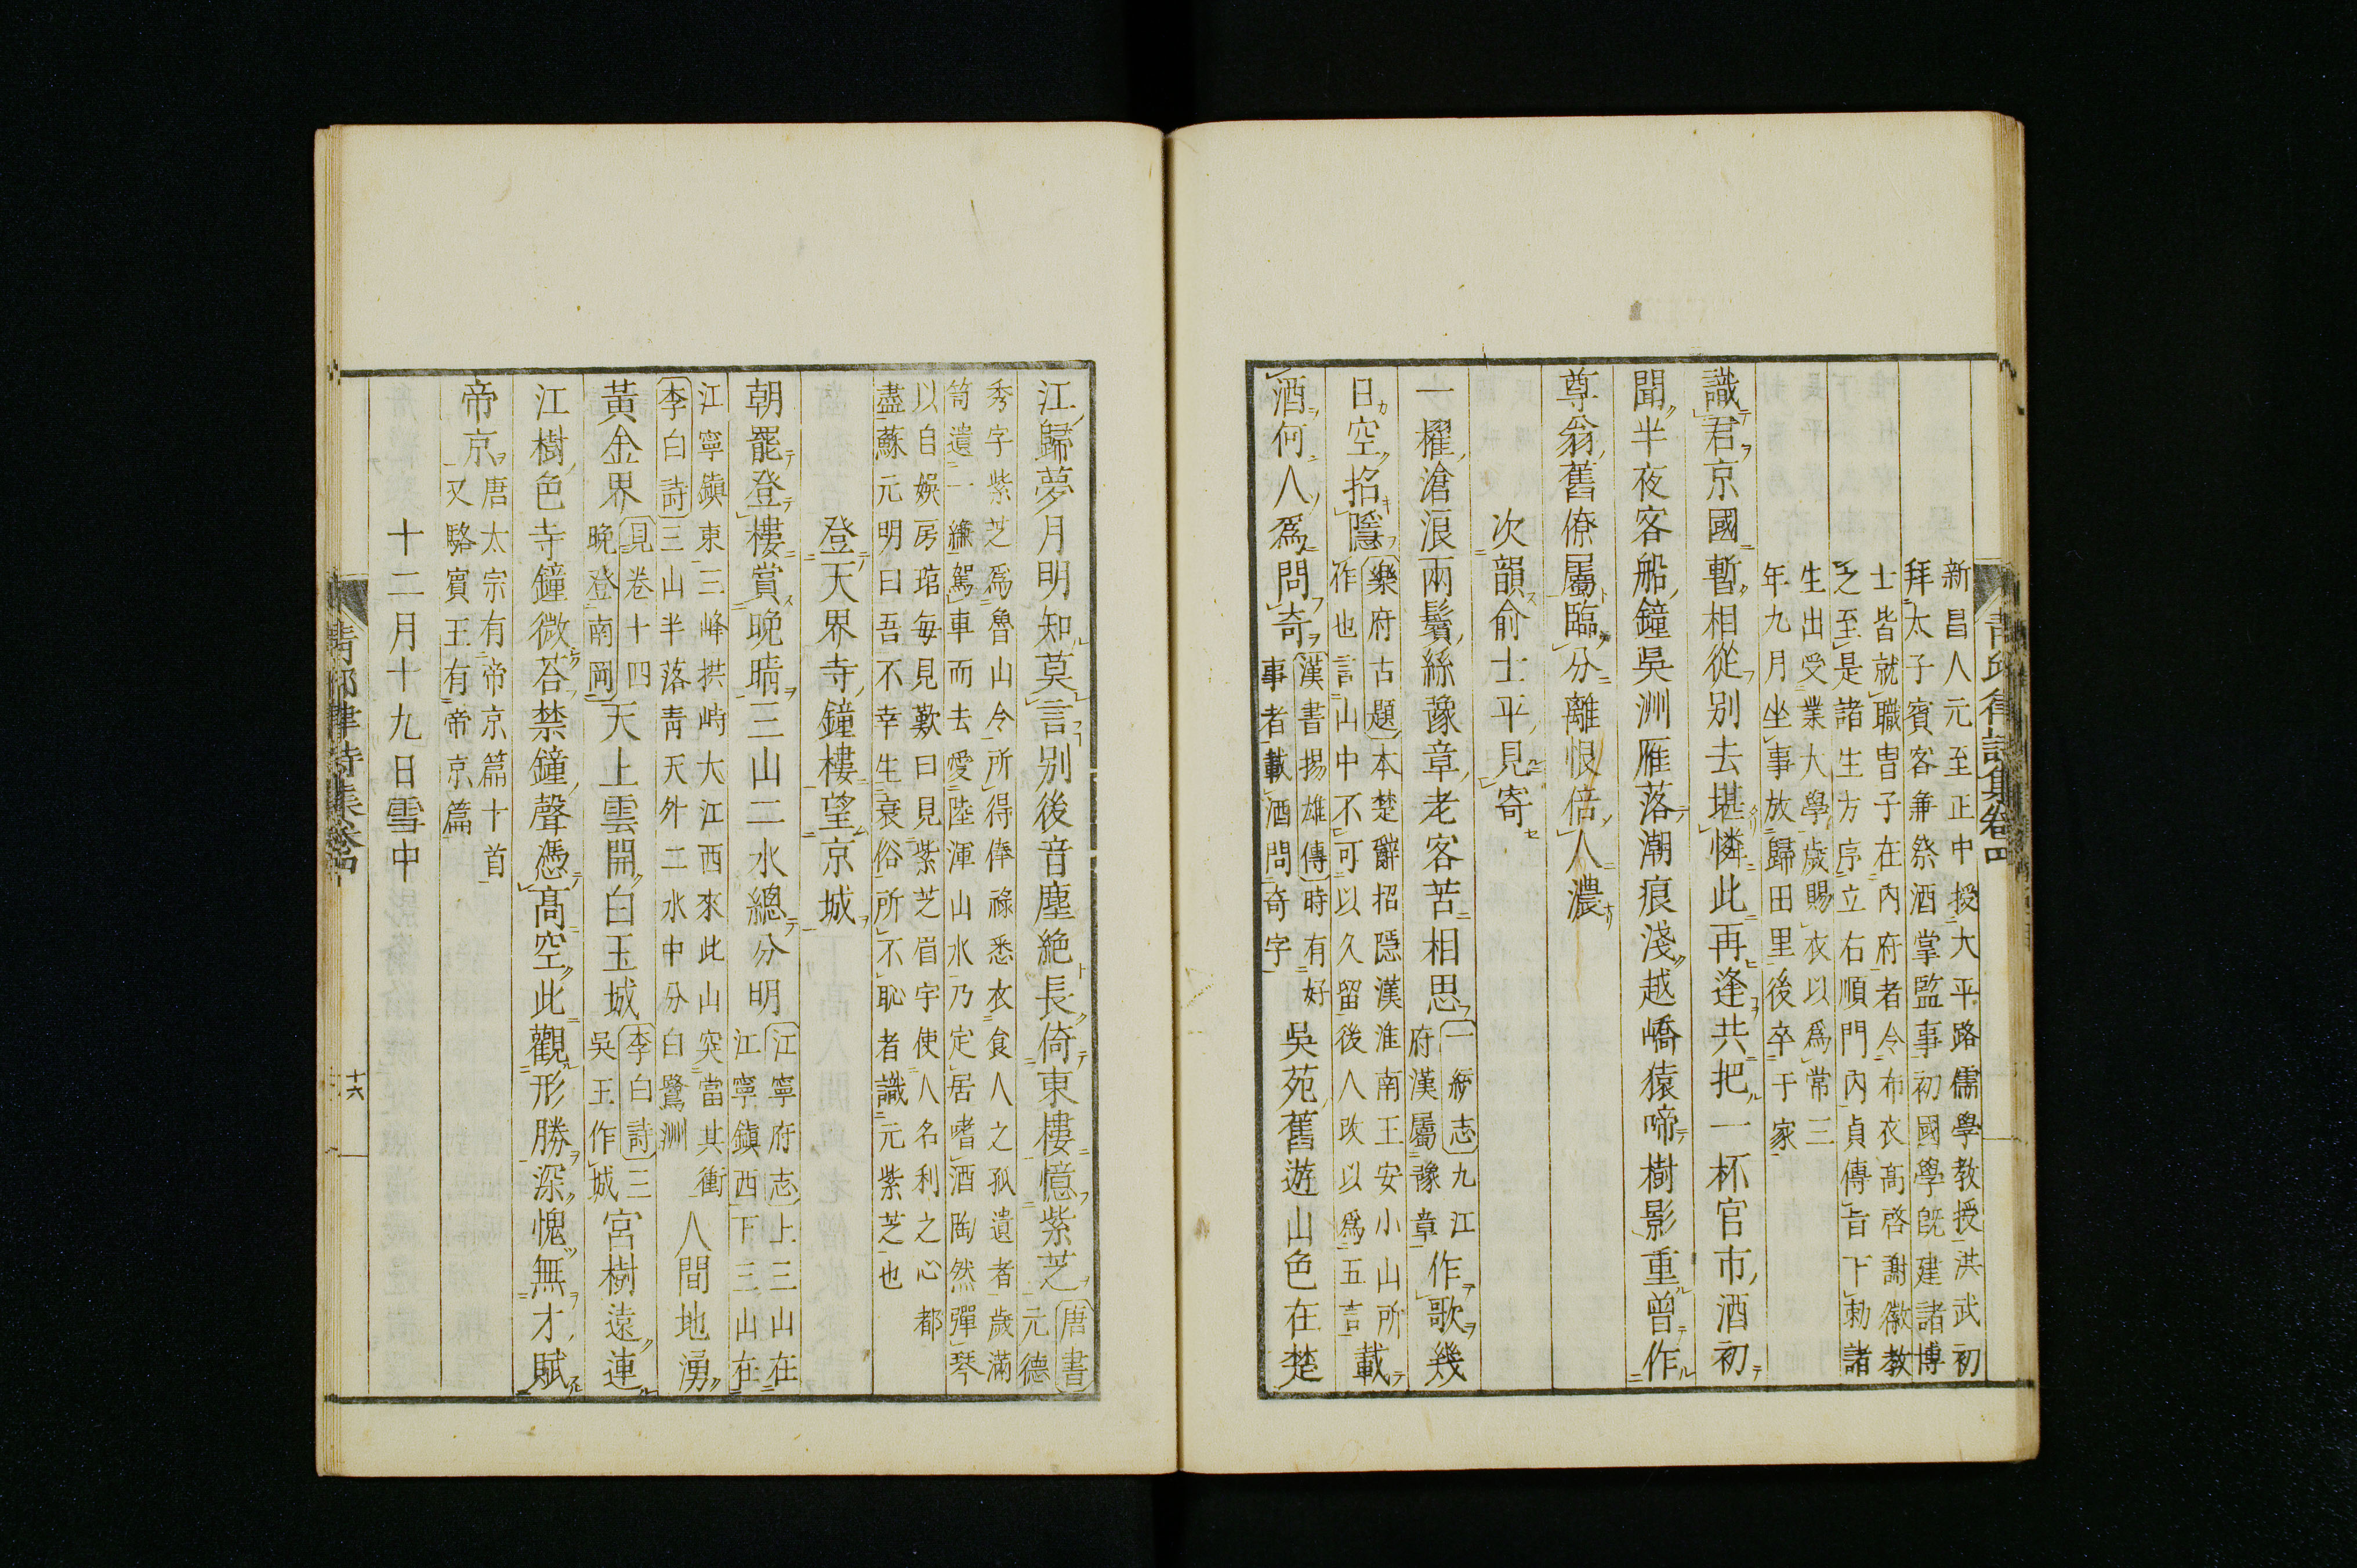 新昌人元至正中授大平路儒學教授洪武初
拜太子賓客兼祭酒掌監事初國學旣建諸博
士皆就職曹子在內府者令布衣高啓謝徽教
之至是諸生方序立右順門內貞傳旨下勅諸
生出受業大學歲賜衣以爲常三
年九月坐事放歸田里後卒于家
識君京國暫相從別去堪憐此再逢共把一杯官市酒初
聞半夜客船鐘吳洲雁落潮痕淺越嶠猿啼樹影重曾作
尊翁舊僚屬臨分離恨倍人濃
次韻俞士平見寄
一櫂滄浪兩鬢絲豫章老客苦相思
一統志九江
府漢屬豫章
作歌幾
日空招隱
樂府古題本楚辭招隱漢淮南王安小山所
作也言山中不可以久留後人改以爲五言
載
酒何人爲問奇
漢書揚雄傳時有好
事者載酒問奇字
吳苑舊遊山色在楚
青邱律詩集卷四
江歸夢月明知莫言別後音塵絶長倚東樓憶紫芝
唐書
元德
秀字紫芝爲魯山令所得俸祿悉衣食人之孤遺者歲滿
笥遺一縑駕車而去愛陸渾山水乃定居嗜酒陶然彈琴
以自娛房琯每見歎曰見紫芝眉宇使人名利之心都
盡蘇元明曰吾不幸生衰俗所不恥者識元紫芝也
登天界寺鐘樓望京城
朝罷登樓賞晚晴三山二水總分明
江寧府志上三山在
江寧鎮西下三山在
江寧鎮東三峰拱峙大江西來此山突當其衝
李白詩三山半落青天外二水中分白鷺洲
人間地湧
黃金界
見卷十四
晚登南岡
天上雲開白玉城
李白詩三
吳王作城
宮樹遠連
江樹色寺鐘微荅禁鐘聲憑高空此觀形勝深愧無才賦
帝京
唐太宗有帝京篇十首
又駱賓王有帝京篇
十二月十九日雪中
青邱律詩集卷四
十六